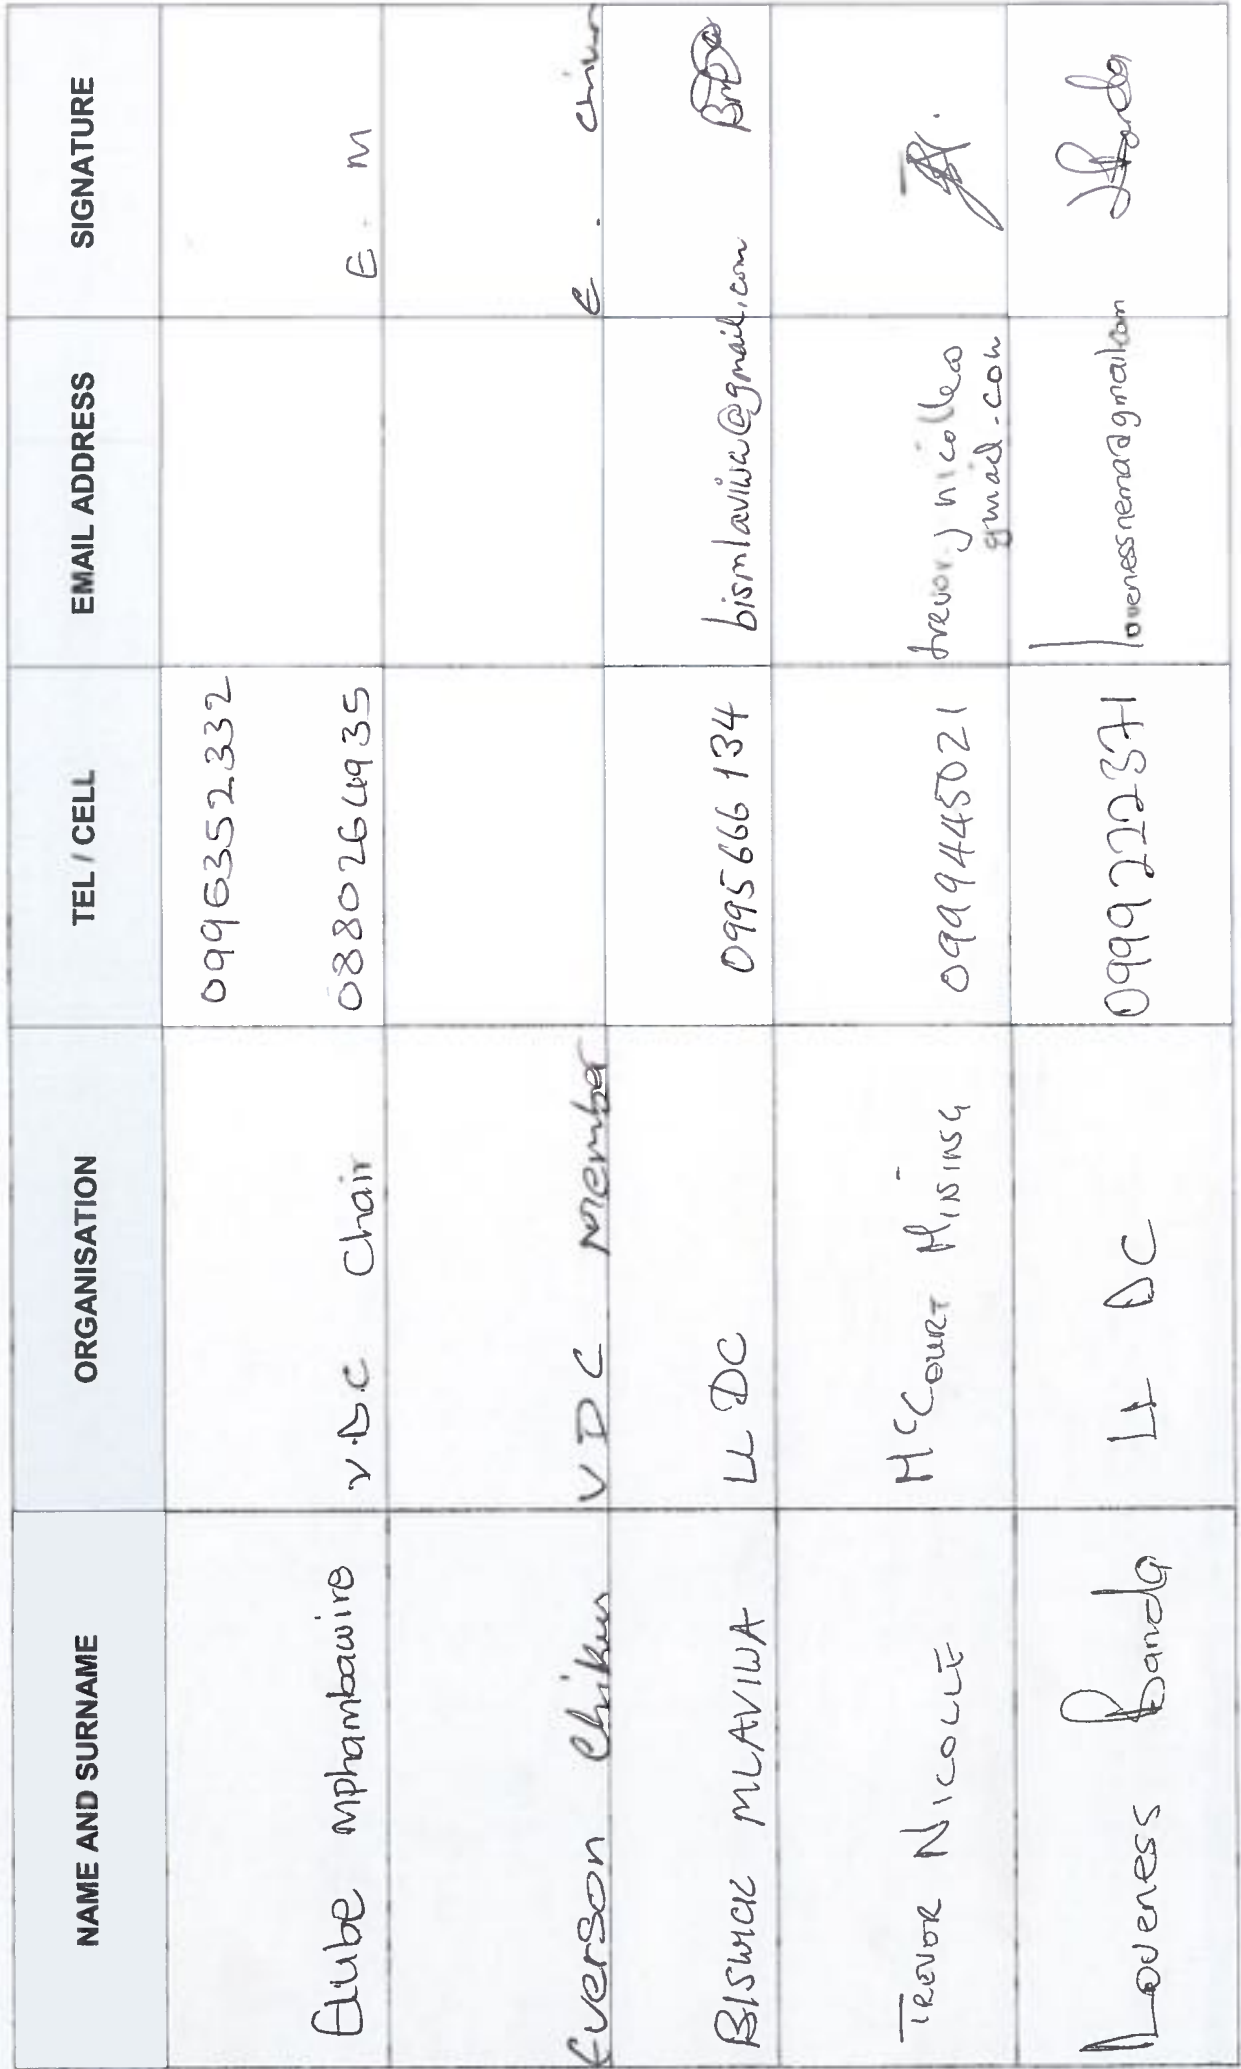 NAME AND SURNAME ORGANISATION TEL / CELL EMAIL ADDRESS SIGNATURE
0996352332
mphambawire V.D.C Chair 0880264935 E. M
Everson VDC member E.
BISWICK MLAVIWA LL DC 0995666134 bismlaviwa@gmail.com
TREVOR NICOLLE McCOURT MINING 0999445021
gmail.com
Loveness Banda LL DC 0999222371 lovenessnema@gmail.com